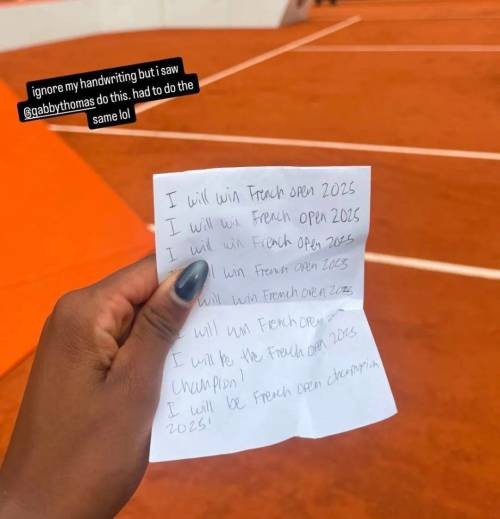 ignore my handwriting but i saw
@gabbythomas do this. had to do the
same lol
I will win French open 2025
I will win French open 2025
I will win French open 2025
will win French open 2025
will win French open 2025
I will win French open
I will be the French open 2025
Champion!
I will be French open champion
2025!